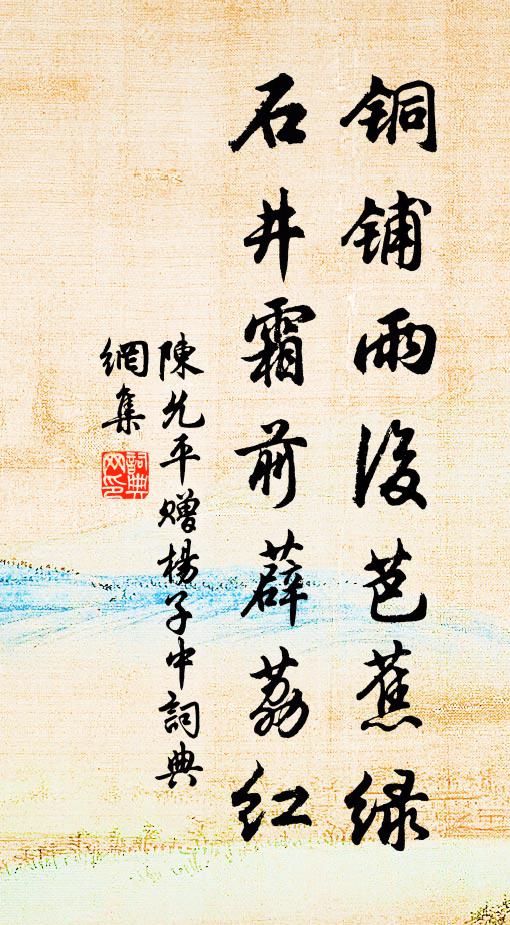 铜铺雨後芭蕉绿
石井霜前薜荔红
陳允平赠楊子中詞典
網集
詞典
网印